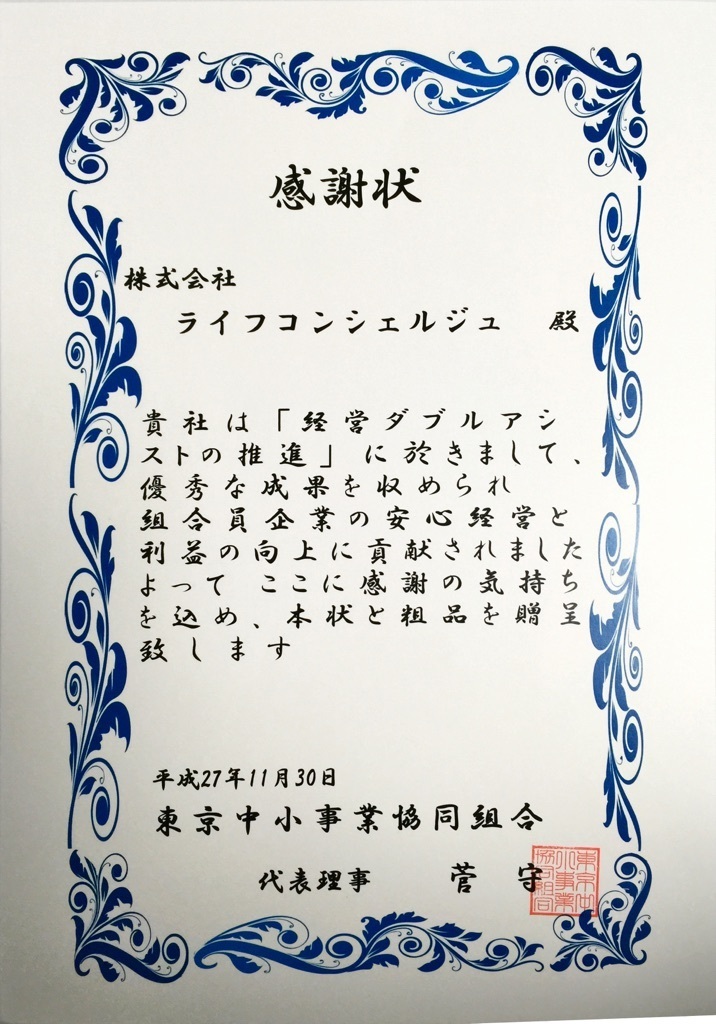 感謝状
株式会社
ライフコンシェルジュ 殿
貴社は「経営ダブルアシ
ストの推進」に於きまして、
優秀な成果を収められ
組合員企業の安心経営と
利益の向上に貢献されました
よって ここに感謝の気持ち
を込め、本状と粗品を贈呈
致します
平成27年11月30日
東京中小事業協同組合
代表理事 菅 守
東京中
小事業
協同組合